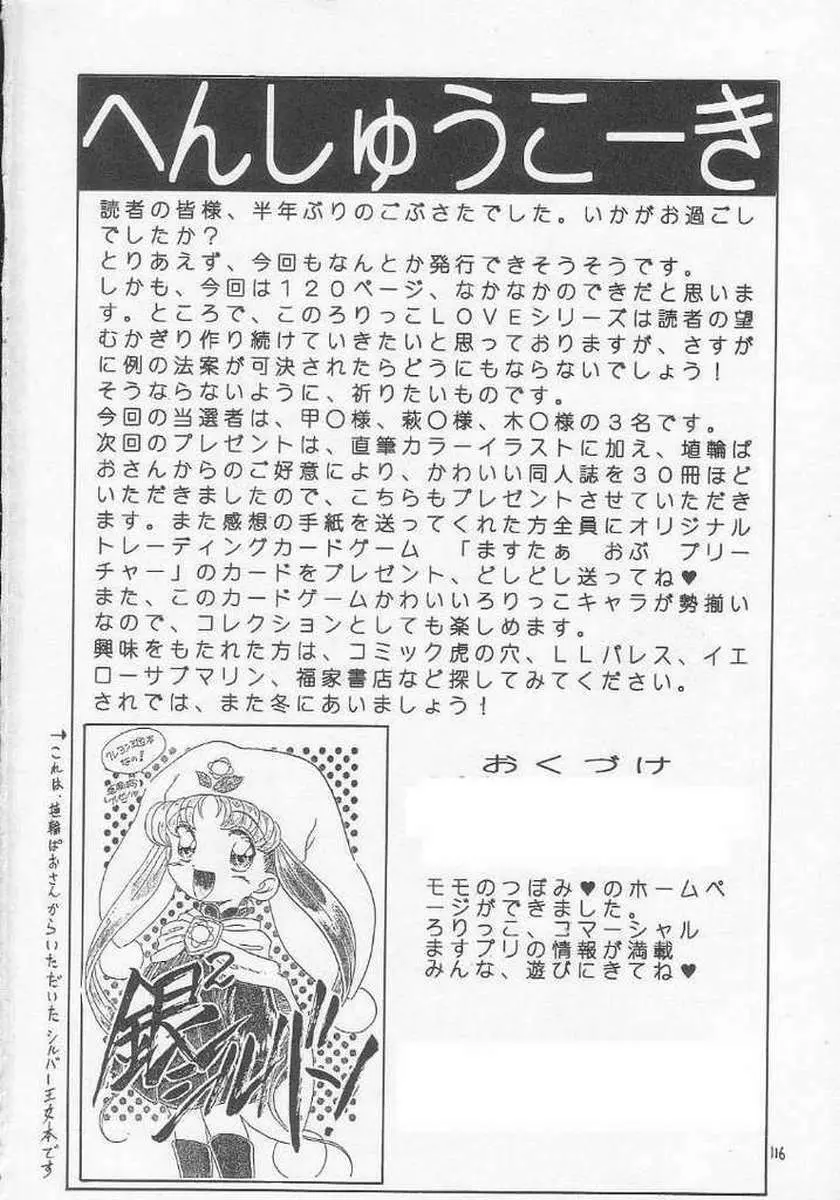 へんしゅうこーき
読者の皆様、半年ぶりのごぶさたでした。いかがお過ごし
でしたか？
とりあえず、今回もなんとか発行できそうそうです。
しかも、今回は１２０ページ、なかなかのできだと思いま
す。ところで、このろりっこＬＯＶＥシリーズは読者の望
むかぎり作り続けていきたいと思っておりますが、さすが
に例の法案が可決されたらどうにもならないでしょう！
そうならないように、祈りたいものです。
今回の当選者は、甲〇様、萩〇様、木〇様の３名です。
次回のプレゼントは、直筆カラーイラストに加え、埴輪ぱ
おさんからのご好意により、かわいい同人誌を３０冊ほど
いただきましたので、こちらもプレゼントさせていただき
ます。また感想の手紙を送ってくれた方全員にオリジナル
トレーディングカードゲーム　「ますたぁ　おぶ　プリー
チャー」のカードをプレゼント、どしどし送ってね♥
また、このカードゲームかわいいろりっこキャラが勢揃い
なので、コレクションとしても楽しめます。
興味をもたれた方は、コミック虎の穴、ＬＬパレス、イエ
ローサブマリン、福家書店など探してみてください。
されでは、また冬にあいましょう！
→これは、埴輪ぱおさんからいただいたシルバー王女本です
銀²シルバー
おくづけ
モモのつぼみ♥のホームペ
ージができました。
ろりっこ、コマーシャル
ますプリの情報が満載
みんな、遊びにきてね♥
116